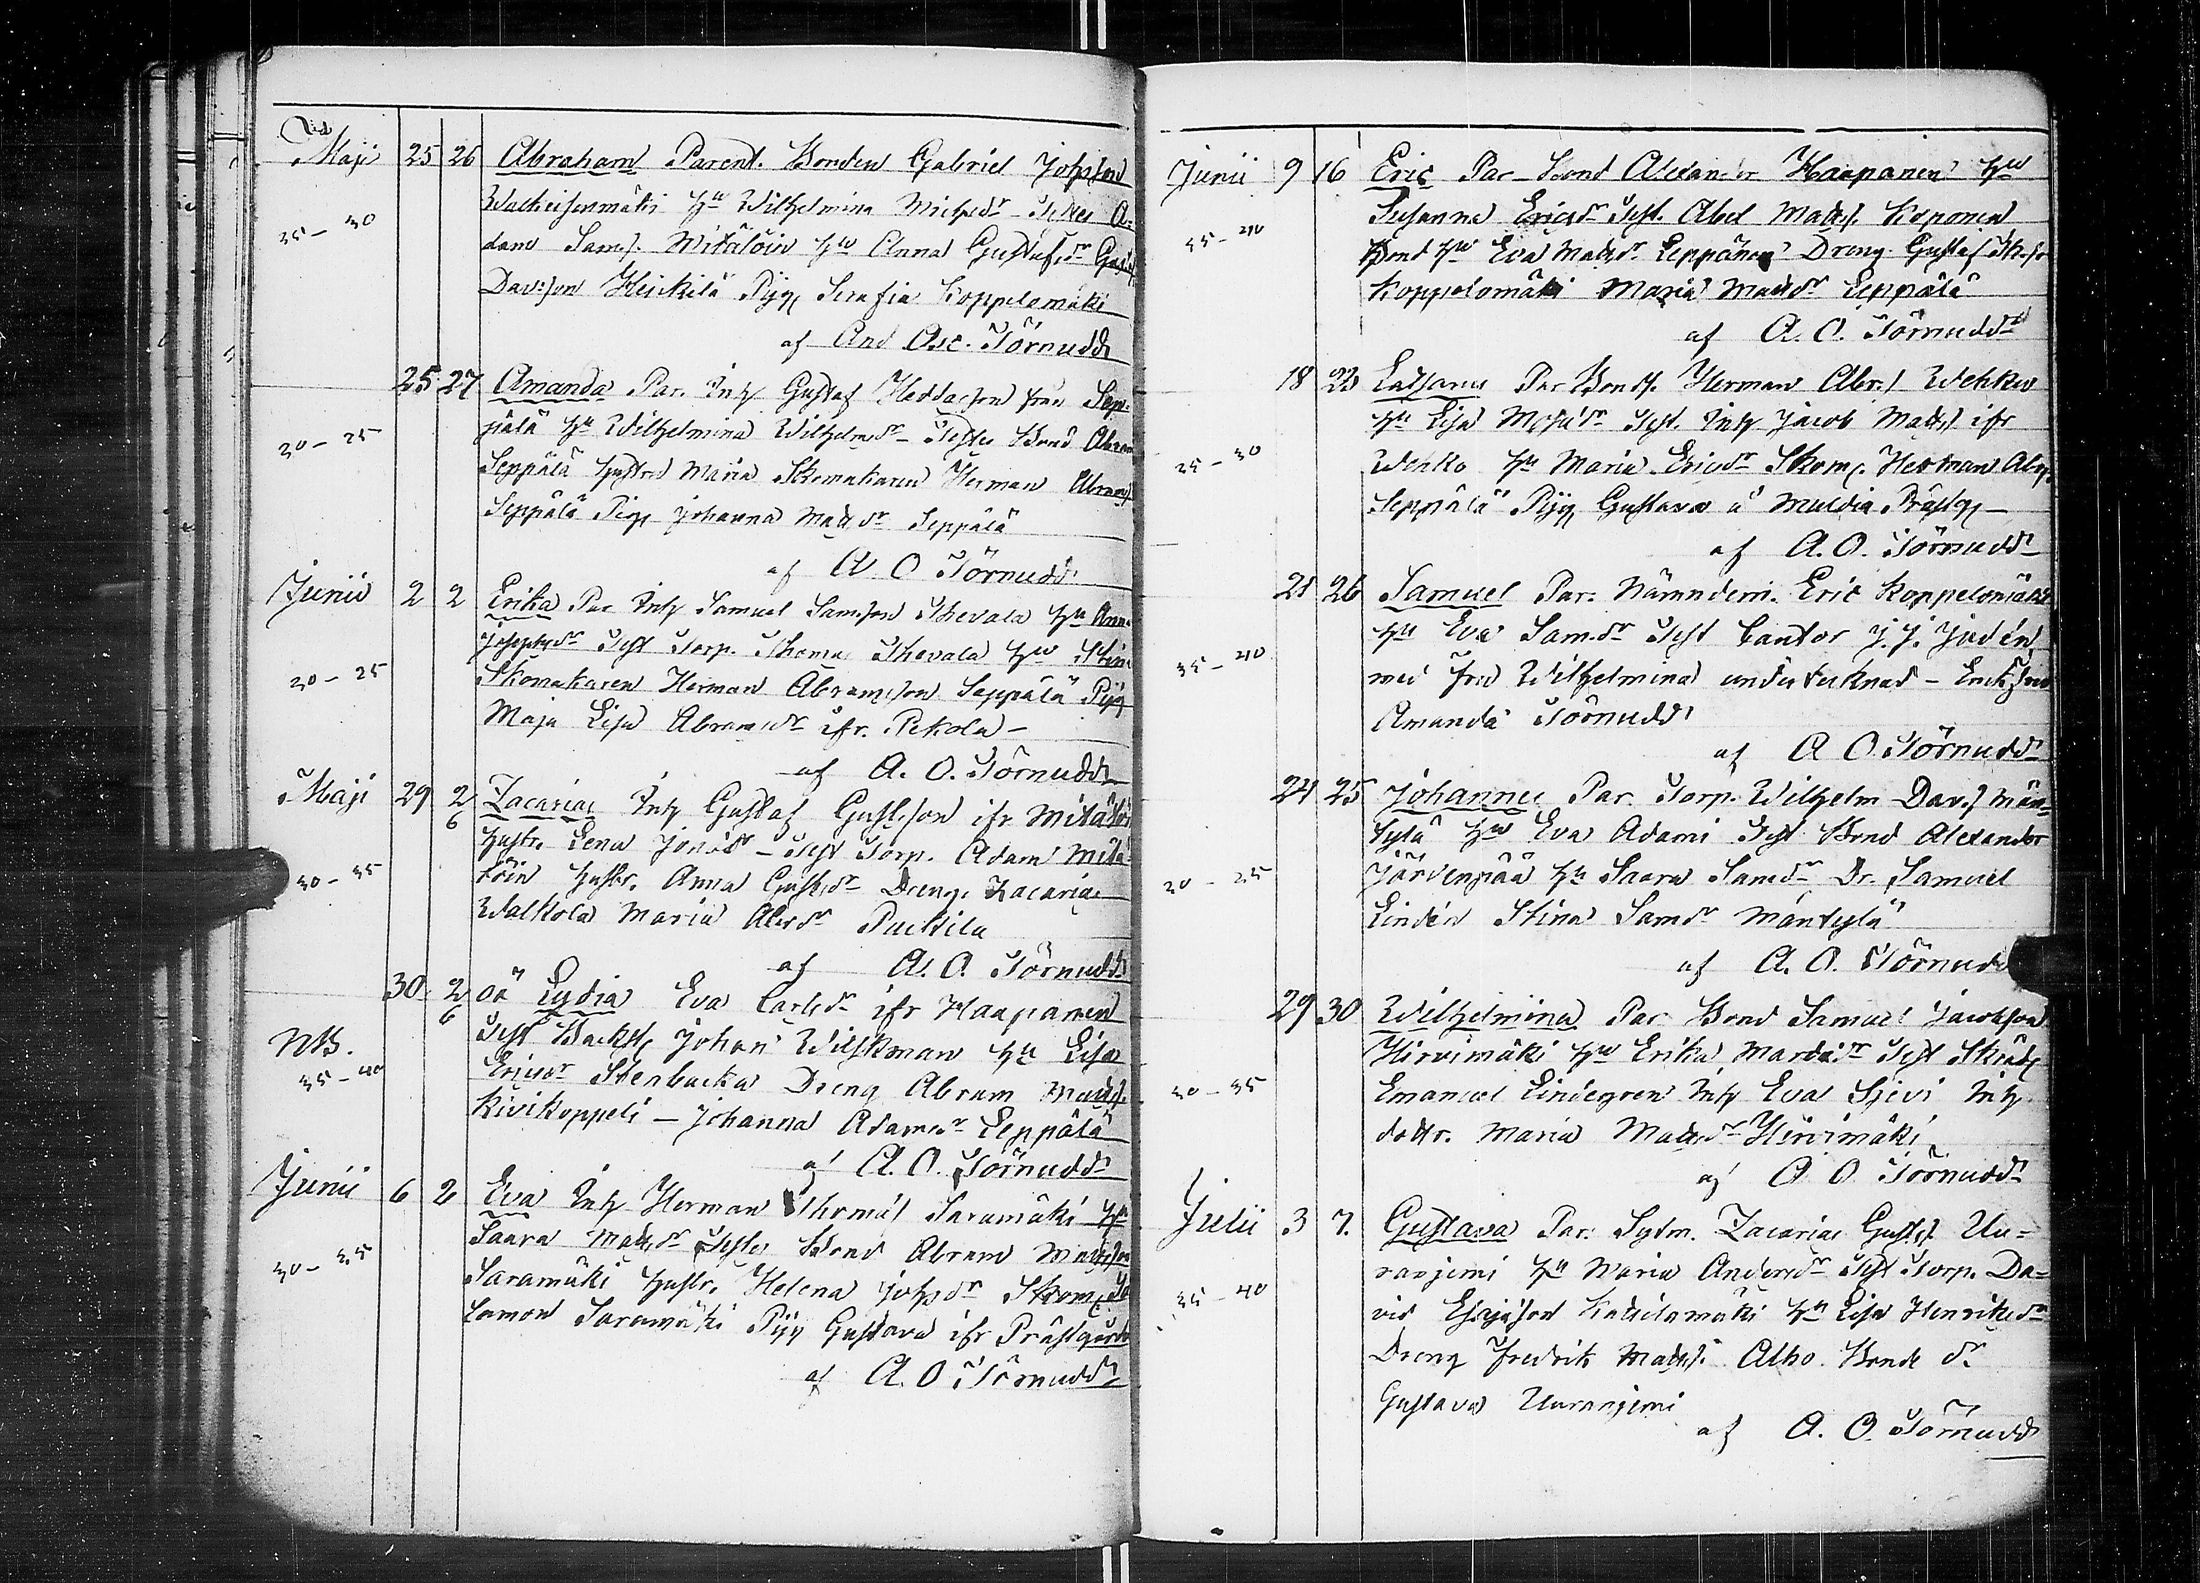 Maji 25 26 Abraham Parent. Bonden Gabriel Johsson
Walkeisenmäki hu Wilhelmina Michsdr Testes A-
35–30 dam Sams. Mitälöin hu Anna Gustafsdr Gust
Davson Heickilä Pig Serafia Koppelomäki
af And Osc. Törnudd
25 27 Amanda Par. Inh Gustaf Heddasson från Sep-
pälä hu Wilhelmina Wilhelmsdr Testes Bond Abram
20–25 Seppälä hustru Maria Skomakaren Herman Abrams
Seppälä Pig Johanna Matsdr Seppälä
af A O Törnudd
Junii 2 2 Erika Par Inh Samuel Samson Thevala hu Anna
Josephsdr Test Torp. Thomas Thevala hu Stina
20–25 Skomakaren Herman Abramsson Seppälä Pig
Maja Lisa Abramsdr ifr. Pekola –
af A. O. Törnudd
Maji 29 2/6 Zacarias Inh Gustaf Gustsson ifr Mitälöin
hustr. Lena Jonasdr – Test Torp. Adam Mitä-
30–35 löin hustr. Anna Gustsdr Dreng. Zacarias
Walkola Maria Abrsdr Puckila
af A. O. Törnudd
30 2/6 oä Lydia Eva Carlsdr ifr Haapanen
NB. Test Johan Wilskman hu Lisa
35–40 Ericsdr Stenbacka Dreng Abram Matts
Kivikoppeli – Johanna Adamsdr Leppälä
af A. O. Törnudd
Junii 6 2 Eva Inh Herman Thomas Saramäki hu
Saara Matsdr Testes Bond Abram Mattsson
30–35 Saramäki hustr. Helena Johsdr Skom. Sa-
lamon Saramäki Pig Gustava ifr Prästgård
af A. O Törnudd
Junii 9 16 Eric Par – Bond Alexander Haapanen hu
Susanna Ericsdr Test. Abel Matts. Koponen
35–40 Bond hu Eva Matsdr Leppänen Dreng Gustaf
Koppelomäki Maria Matsdr Leppälä
af A. O. Törnudd
18 23 Catharina Par Bonds. Herman Abr. Wehko
hu Lisa Mosisdr Test. Inh Jacob Matts ifr
25–30 Wehko hu Maria Ericsdr Skom. Herman Abr.
Seppälä Pig Gustava å Muldia Prästg –
af A. O. Törnudd
21 26 Samuel Par. Nämndem. Eric Koppelomäki
hu Eva Sam.dr Test Cantor J. J. Judén
35–40 med fru Wilhelmina undertecknad – Enkefru
Amanda Törnudd
af A O. Törnudd
24 25 Johannes Par. Torp. Wilhelm Dav. Män-
tylä hu Eva Adami Test Bond Alexander
20–25 Järvenpää hu Saara Samdr Dr. Samuel
Lindén Stina Samdr Mäntylä
af A. O. Törnudd
29 30 Wilhelmina Par Bond Samuel Jacobson
Hirvimäki hu Erika Mardisdr Test Skräd.
30–35 Emanuel Lindegren Inh Eva Sjevi Inh
dottr. Maria Matsdr Hirvimäki
af A O Törnudd
Julii 3 7. Gustava Par. Sytn. Zacarias Gusts. Uu-
ranjemi hu Maria Andersdr Test Torp. Da-
35–40 vid Esajason Kukilamäki hu Lisa Henriksdr
Dreng Fredrik Matts. Alho. Bonde dr
Gustava Uuranjemi
af A. O. Törnudd